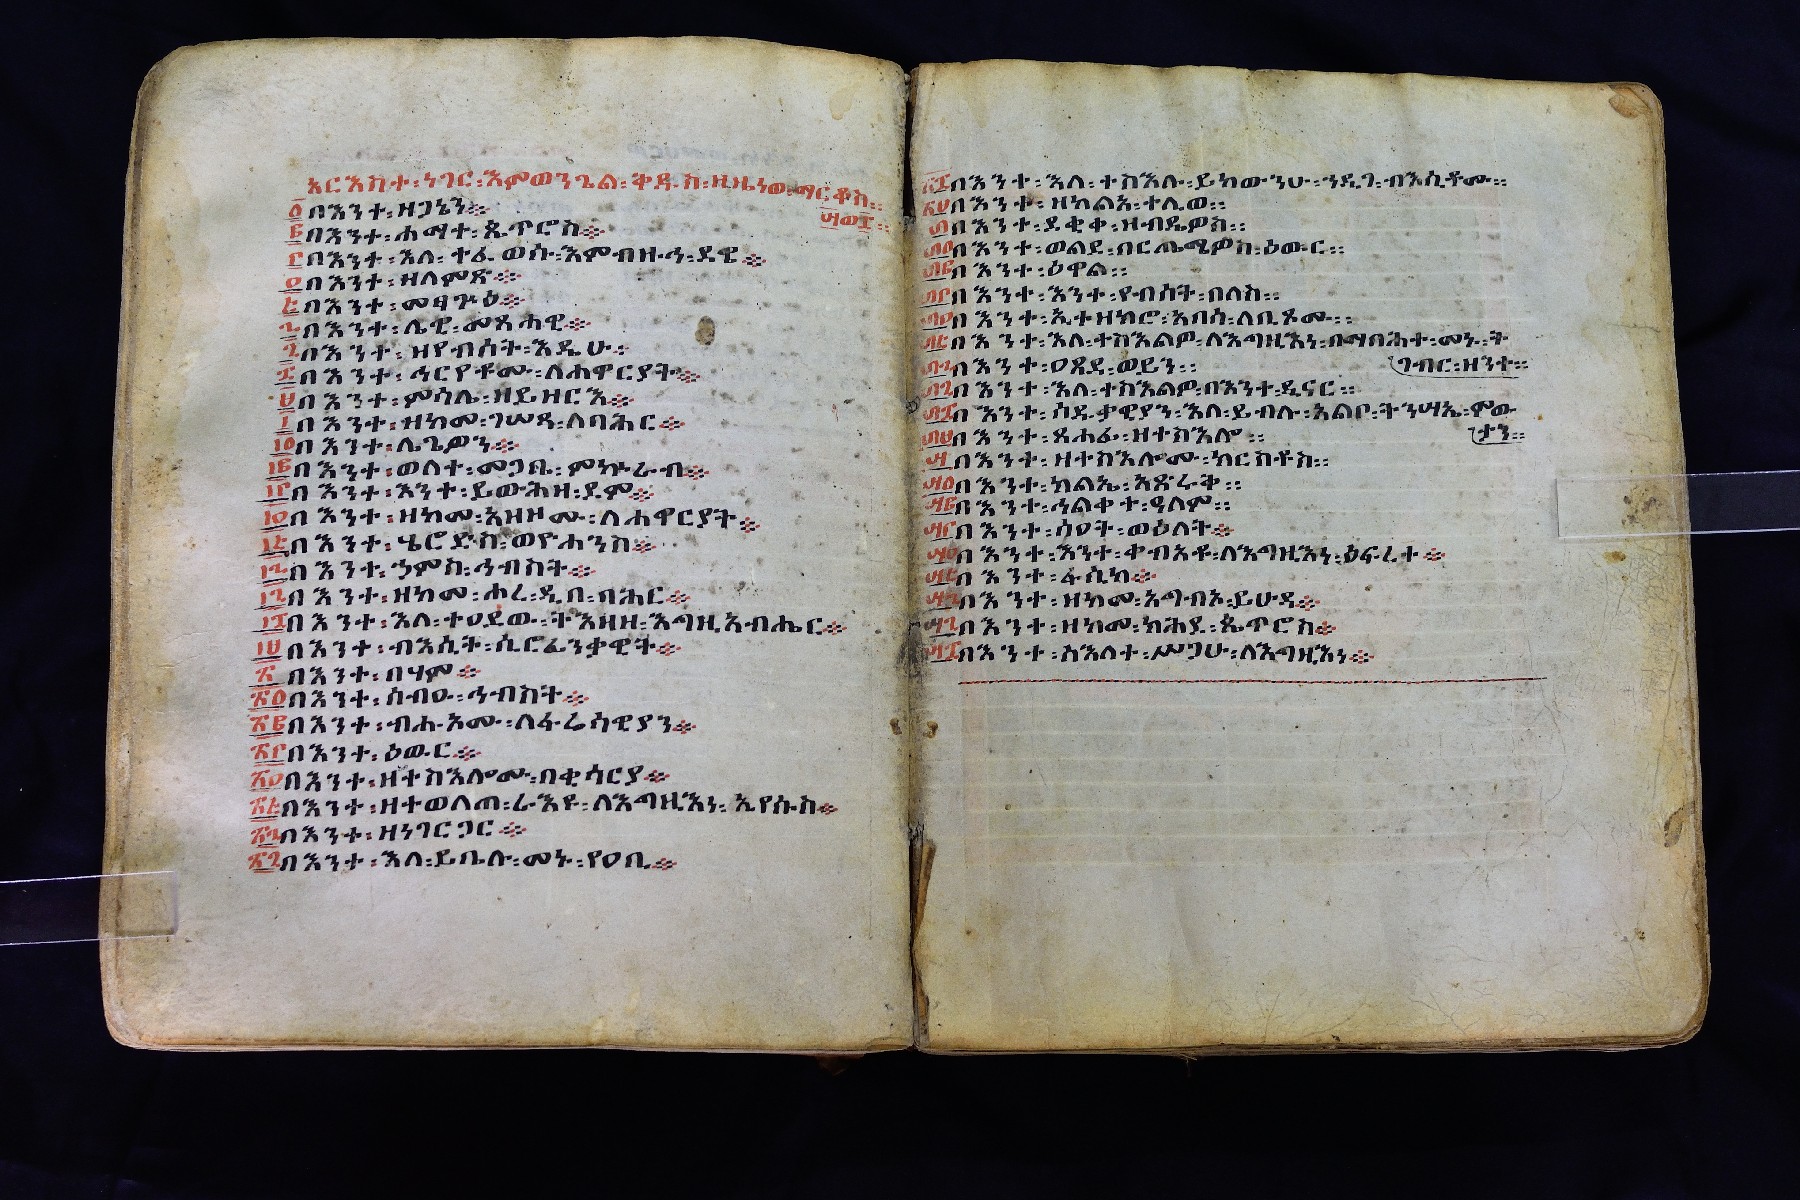 አርእስተ፡ ነገር፡ እምወንጌል፡ ቅዱስ፡ ዘዜነወ፡ ማርቆስ፡፡
፵ወ፰፡፡
፩ በእንተ፡ ዘጋኔን፨
፪ በእንተ፡ ሐማተ፡ ጴጥሮስ፨
፫ በእንተ፡ እለ፡ ተፈወሱ፡ እምብዙኅ፡ ደዌ፨
፬ በእንተ፡ ዘለምጽ፨
፭ በእንተ፡ መፃጕዕ፨
፮ በእንተ፡ ሌዊ፡ መጸሐዊ፨
፯ በእንተ፡ ዘየብሰት፡ እዴሁ፨
፰ በእንተ፡ ኅርየቶሙ፡ ለሐዋርያት፨
፱ በእንተ፡ ምሳሌ፡ ዘይዘርእ፨
፲ በእንተ፡ ዘከመ፡ ገሠጻ፡ ለባሕር፨
፲፩ በእንተ፡ ሌጌዎን፨
፲፪ በእንተ፡ ወለተ፡ መጋቤ፡ ምኵራብ፨
፲፫ በእንተ፡ እንተ፡ ይውሕዘ፡ ደም፨
፲፬ በእንተ፡ ዘከመ፡ አዘዞሙ፡ ለሐዋርያት፨
፲፭ በእንተ፡ ሄሮድስ፡ ወዮሐንስ፨
፲፮ በእንተ፡ ኃምስ፡ ኅብስት፨
፲፯ በእንተ፡ ዘከመ፡ ሖረ፡ ዲበ፡ ባሕር፨
፲፰ በእንተ፡ እለ፡ ተዐደው፡ ትእዛዘ፡ እግዚአብሔር፨
፲፱ በእንተ፡ ብእሲት፡ ሲሮፊንቃዊት፨
፳ በእንተ፡ በሃም፨
፳፩ በእንተ፡ ሰብዑ፡ ኅብስት፨
፳፪ በእንተ፡ ብሑአሙ፡ ለፋሬሳዊያን፨
፳፫ በእንተ፡ ዕውር፨
፳፬ በእንተ፡ ዘተስእሎሙ፡ በቂሳርያ፨
፳፭ በእንተ፡ ዘተወለጠ፡ ራእዩ፡ ለእግዚእነ፡ ኢየሱስ፨
፳፮ በእንተ፡ ዘነገርጋር፨
፳፯ በእንተ፡ እለ፡ ይቤሉ፡ መኑ፡ የዐቢ፨
፳፰ በእንተ፡ እለ፡ ተስእሉ፡ ይከውንሁ፡ ኀዲገ፡ ብእሲቶሙ፡፡
፳፱ በእንተ፡ ዘከልአ፡ ተሊወ፡፡
፴ በእንተ፡ ደቂቀ፡ ዘብዴዎስ፡፡
፴፩ በእንተ፡ ወልደ፡ በርጤሜዎስ፡ ዕውር፡፡
፴፪ በእንተ፡ ዕዋል፡፡
፴፫ በእንተ፡ እንተ፡ የብሰት፡ በለስ፡፡
፴፬ በእንተ፡ ኢተዘክሮ፡ አበሳ፡ ለቢጾሙ፡፡
፴፭ በእንተ፡ እለ፡ ተስእልዎ፡ ለእግዚእነ፡ በማበሕተ፡ መኑ፡ ት
ገብር፡ ዘንተ፡፡
፴፮ በእንተ፡ ዐጸደ፡ ወይን፡፡
፴፯ በእንተ፡ እለ፡ ተስእልዎ፡ በእንተ፡ ዲናር፡፡
፴፰ በእንተ፡ ሰዱቃዊያን፡ እለ፡ ይብሉ፡ አልቦ፡ ትንሣኤ፡ ምው
ታን፡፡
፴፱ በእንተ፡ ጸሐፊ፡ ዘተስእሎ፡፡
፵ በእንተ፡ ዘተስእሎሙ፡ ክርስቶስ፡፡
፵፩ በእንተ፡ ክልኤ፡ አጽራቅ፡፡
፵፪ በእንተ፡ ኅልቀተ፡ ዓለም፡፡
፵፫ በእንተ፡ ሰዐት፡ ወዕለት፨
፵፬ በእንተ፡ እንተ፡ ቀብአቶ፡ ለእግዚእነ፡ ዕፍረተ፨
፵፭ በእንተ፡ ፋሲካ፨
፵፮ በእንተ፡ ዘከመ፡ አግብኦ፡ ይሁዳ፨
፵፯ በእንተ፡ ዘከመ፡ ክሕደ፡ ጴጥሮስ፨
፵፰ በእንተ፡ ስእለተ፡ ሥጋሁ፡ ለእግዚእነ፨